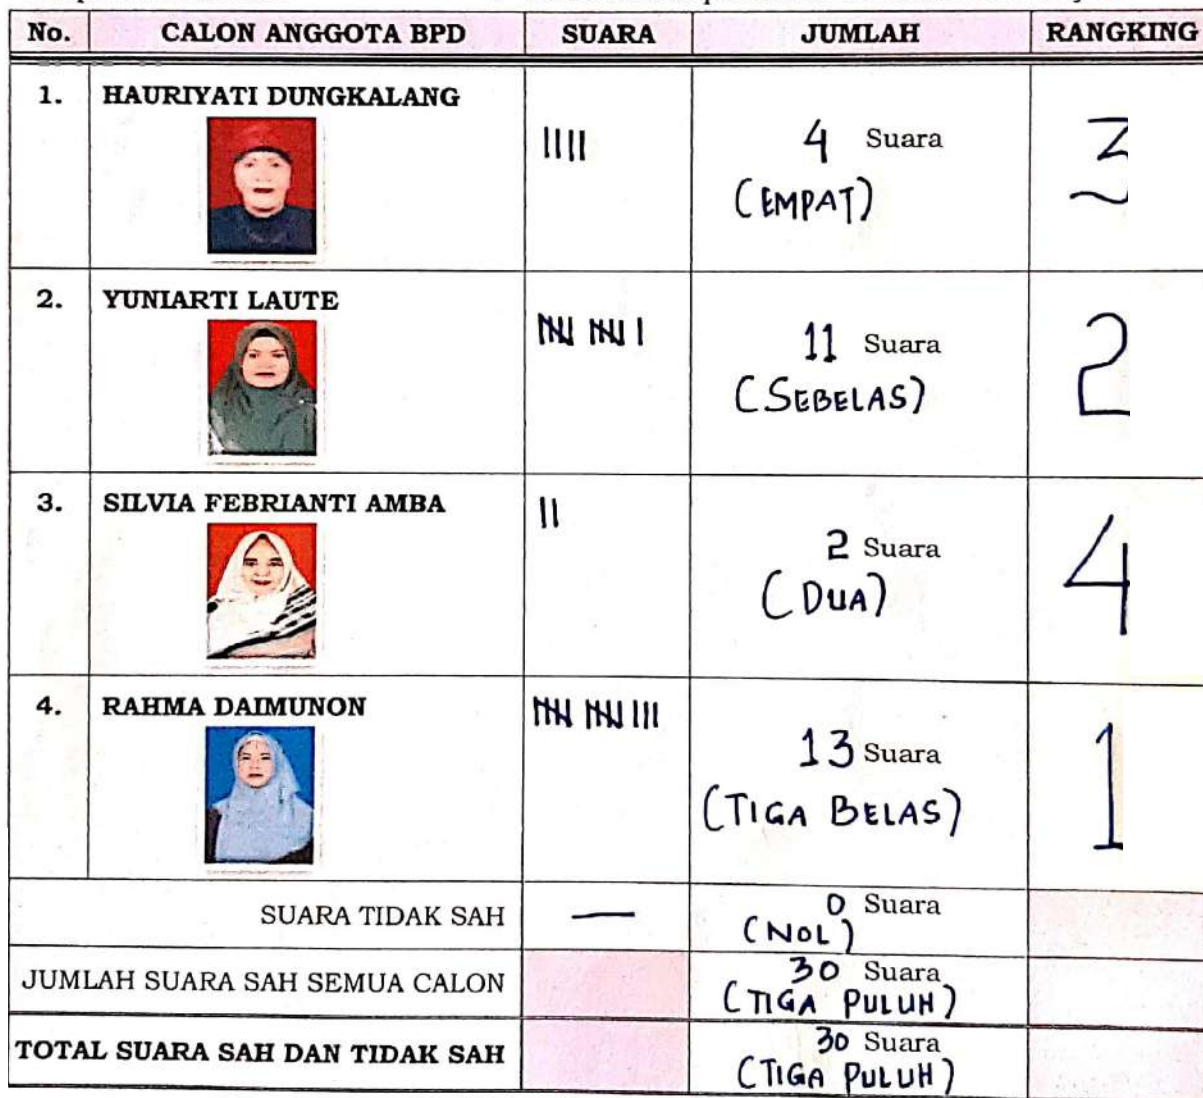 No. CALON ANGGOTA BPD SUARA JUMLAH RANGKING
1. HAURIYATI DUNGKALANG
4 Suara 3
(EMPAT)
2. YUNIARTI LAUTE
11 Suara 2
(SEBELAS)
3. SILVIA FEBRIANTI AMBA
2 Suara 4
(DUA)
4. RAHMA DAIMUNON
13 Suara 1
(TIGA BELAS)
SUARA TIDAK SAH — 0 Suara
(NOL)
JUMLAH SUARA SAH SEMUA CALON 30 Suara
(TIGA PULUH)
TOTAL SUARA SAH DAN TIDAK SAH 30 Suara
(TIGA PULUH)